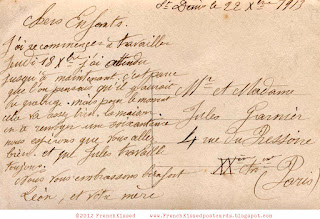 St Denis le 22 Xbre 1913
Chers Enfants.
J'ai recommencer a travailler
Jeudi 18 Xbre j'ai attendu
jusqu'a maintenant. c'est parce
que l'on pensait qu'il y aurait
du grabuge. mais pour le moment
cela va assez bien. le magasin
nous espérons que vous allez
bien. et que Jules travaille
toujours.
Nous vous embrassons bien fort
Léon, et votre mère
Mr et Madame
Jules Garnier
4 rue du Pressoir
XXème Arr
(Paris)
©2012 FrenchKissed
www.FrenchKissedpostcards.blogspot.com